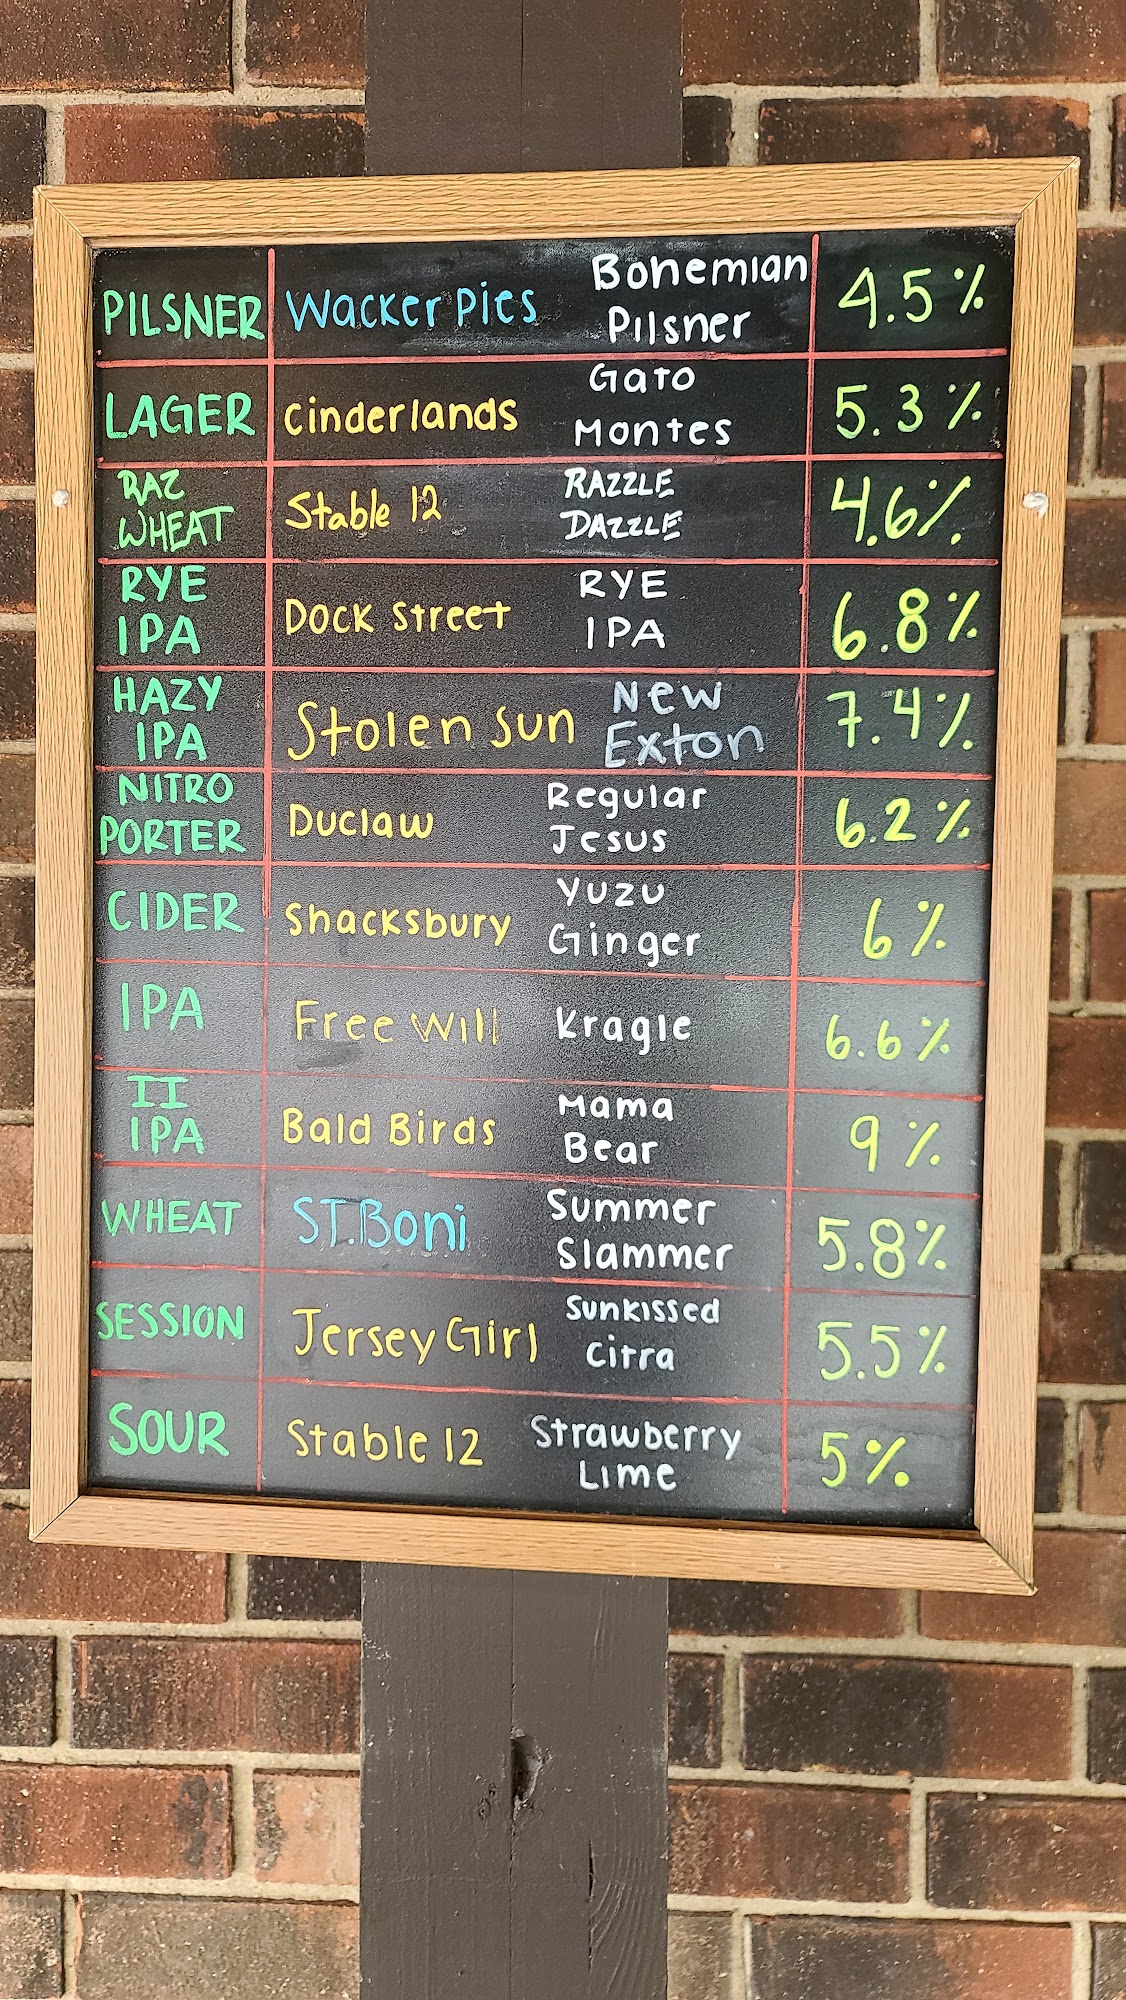 PILSNER Wacker Pies Bohemian Pilsner 4.5%
LAGER Cinderlands Gato Montes 5.3%
RAZ WHEAT Stable 12 RAZZLE DAZZLE 4.6%
RYE IPA Dock Street RYE IPA 6.8%
HAZY IPA Stolen Sun New Exton 7.4%
NITRO PORTER Duclaw Regular Jesus 6.2%
CIDER Shacksbury Yuzu Ginger 6%
IPA Free Will Kragle 6.6%
II IPA Bald Birds Mama Bear 9%
WHEAT ST.Boni Summer Slammer 5.8%
SESSION Jersey Girl Sunkissed Citra 5.5%
SOUR Stable 12 Strawberry Lime 5%